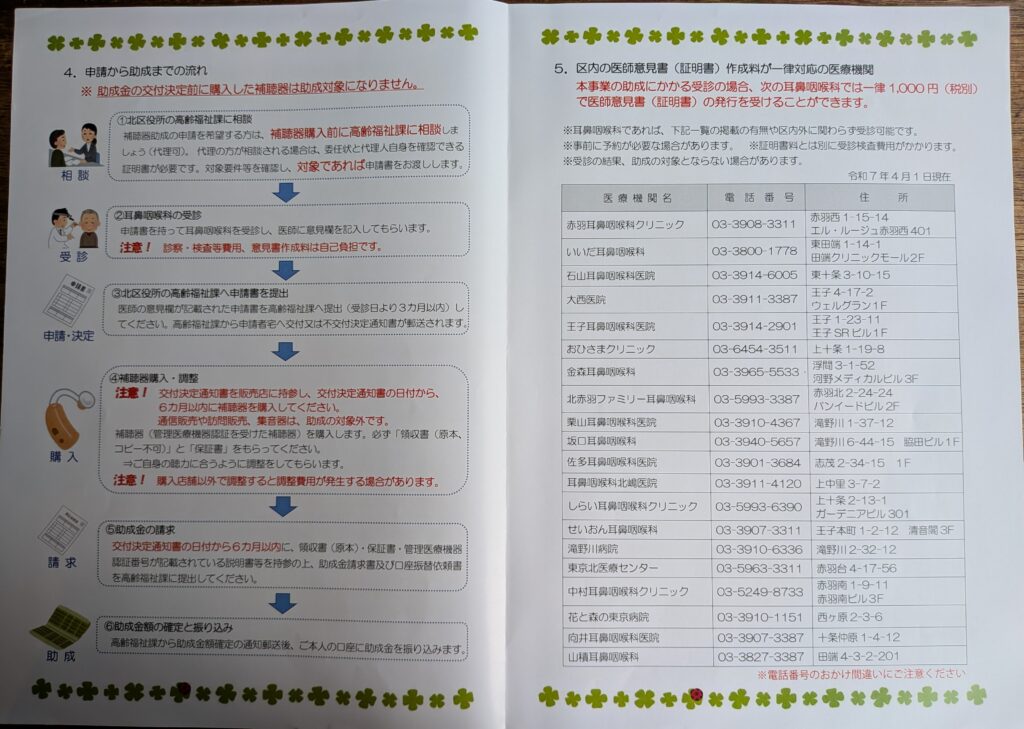 4．申請から助成までの流れ
※ 助成金の交付決定前に購入した補聴器は助成対象になりません。
①北区役所の高齢福祉課に相談
補聴器助成の申請を希望する方は、補聴器購入前に高齢福祉課に相談しま
しょう（代理可）。代理の方が相談される場合は、委任状と代理人自身を確認できる
証明書が必要です。対象要件等を確認し、対象であれば申請書をお渡しします。
相 談
②耳鼻咽喉科の受診
申請書を持って耳鼻咽喉科を受診し、医師に意見欄を記入してもらいます。
注意！ 診察・検査等費用、意見書作成料は自己負担です。
受 診
申請書
③北区役所の高齢福祉課へ申請書を提出
医師の意見欄が記載された申請書を高齢福祉課へ提出（受診日より3カ月以内）し
てください。高齢福祉課から申請者宅へ交付又は不交付決定通知書が郵送されます。
申請・決定
④補聴器購入・調整
注意！ 交付決定通知書を販売店に持参し、交付決定通知書の日付から、
6カ月以内に補聴器を購入してください。
通信販売や訪問販売、集音器は、助成の対象外です。
補聴器（管理医療機器認証を受けた補聴器）を購入します。必ず「領収書（原本、
コピー不可）」と「保証書」をもらってください。
⇒ご自身の聴力に合うように調整をしてもらいます。
注意！ 購入店舗以外で調整すると調整費用が発生する場合があります。
購 入
⑤助成金の請求
交付決定通知書の日付から6カ月以内に、領収書（原本）・保証書・管理医療機器
認証番号が記載されている説明書等を持参の上、助成金請求書及び口座振替依頼書
を高齢福祉課に提出してください。
請 求
⑥助成金額の確定と振り込み
高齢福祉課から助成金額確定の通知郵送後、ご本人の口座に助成金を振り込みます。
助 成
5．区内の医師意見書（証明書）作成料が一律対応の医療機関
本事業の助成にかかる受診の場合、次の耳鼻咽喉科では一律1,000円（税別）
で医師意見書（証明書）の発行を受けることができます。
※耳鼻咽喉科であれば、下記一覧の掲載の有無や区内外に関わらず受診可能です。
※事前に予約が必要な場合があります。 ※証明書料とは別に受診検査費用がかかります。
※受診の結果、助成の対象とならない場合があります。
令和7年4月1日現在
医療機関名 電話番号 住所
赤羽耳鼻咽喉科クリニック 03-3908-3311 赤羽西1-15-14
エル・ルージュ赤羽西401
いいだ耳鼻咽喉科 03-3800-1778 東田端1-14-1
田端クリニックモール2F
石山耳鼻咽喉科医院 03-3914-6005 東十条3-10-15
大西医院 03-3911-3387 王子4-17-2
ウェルグラン1F
王子耳鼻咽喉科医院 03-3914-2901 王子1-23-11
王子SRビル1F
おひさまクリニック 03-6454-3511 上十条1-19-8
金森耳鼻咽喉科 03-3965-5533 浮間3-1-52
河野メディカルビル3F
北赤羽ファミリー耳鼻咽喉科 03-5993-3387 赤羽北2-24-24
パンイードビル2F
栗山耳鼻咽喉科医院 03-3910-4367 滝野川1-37-12
坂口耳鼻咽喉科 03-3940-5657 滝野川6-44-15 脇田ビル1F
佐多耳鼻咽喉科医院 03-3901-3684 志茂2-34-15 1F
耳鼻咽喉科北嶋医院 03-3911-4120 上中里3-7-2
しらい耳鼻咽喉科クリニック 03-5993-6390 上十条2-13-1
ガーデニアビル301
せいおん耳鼻咽喉科 03-3907-3311 王子本町1-2-12 清音閣3F
滝野川病院 03-3910-6336 滝野川2-32-12
東京北医療センター 03-5963-3311 赤羽台4-17-56
中村耳鼻咽喉科クリニック 03-5249-8733 赤羽南1-9-11
赤羽南ビル3F
花と森の東京病院 03-3910-1151 西ヶ原2-3-6
向井耳鼻咽喉科医院 03-3907-3387 十条仲原1-4-12
山積耳鼻咽喉科 03-3827-3387 田端4-3-2-201
※電話番号のおかけ間違いにご注意ください